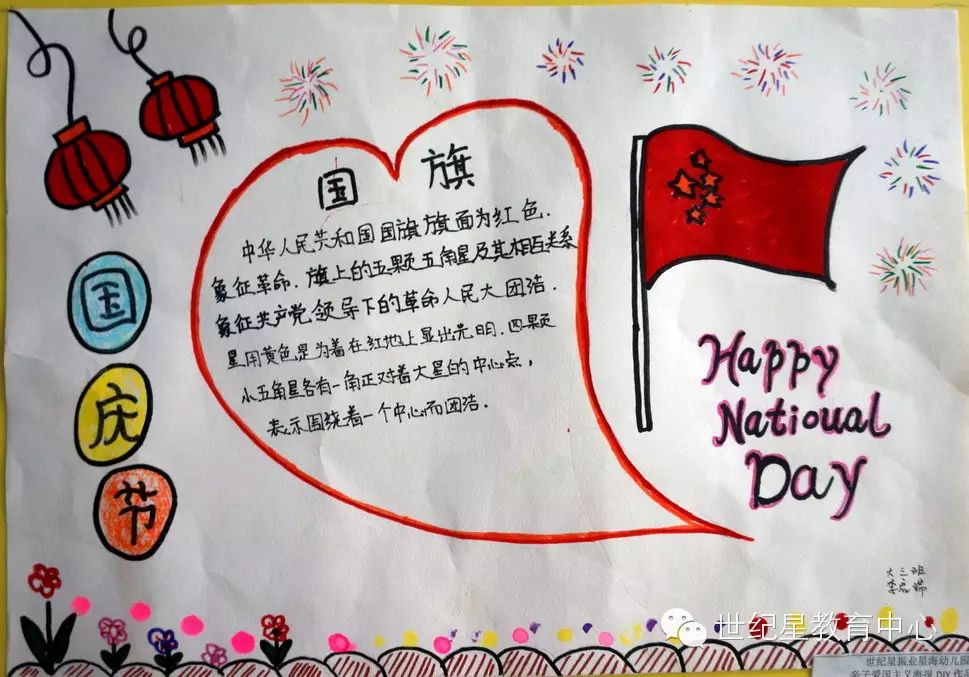 国旗
中华人民共和国国旗旗面为红色.
象征革命.旗上的五颗五角星及其相互关系
象征共产党领导下的革命人民大团结.
星用黄色是为着在红地上显出光明.四颗
小五角星各有一角正对着大星的中心点,
表示围绕着一个中心而团结.
国
庆
节
Happy
Natioual
Day
大三班
世纪星教育中心
世纪星振业星海幼儿园
亲子爱国主义海报DIY作